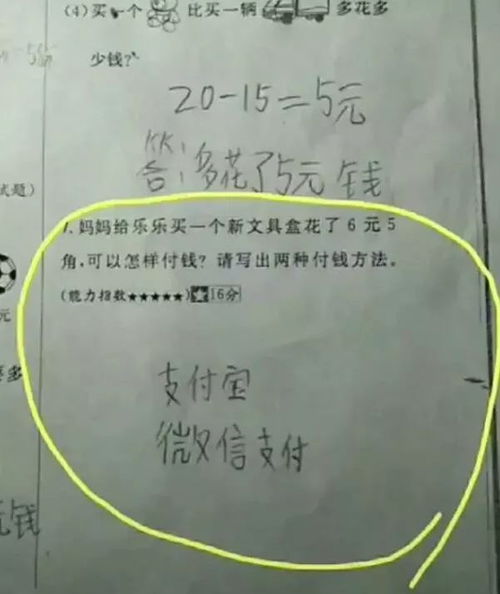 (4)买一个 比买一辆 多花多
少钱?
20-15=5元
答:多花了5元钱
试题)
7.妈妈给乐乐买一个新文具盒花了6元5
角,可以怎样付钱?请写出两种付钱方法。
(能力指数★★★★★)★16分
元
多
支付宝
微信支付
钱